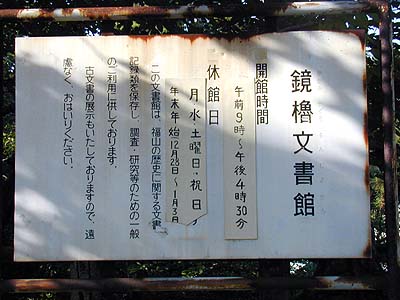 鏡櫓文書館
開館時間
午前9時〜午後4時30分
休館日
月水土曜日・祝日
年末年始12月28日〜1月3日
この文書館は、福山の歴史に関する文書
記録類を保存し、調査・研究等のための一般
のご利用に供しております。
古文書の展示もいたしておりますので、遠
慮なく、おはいりください。